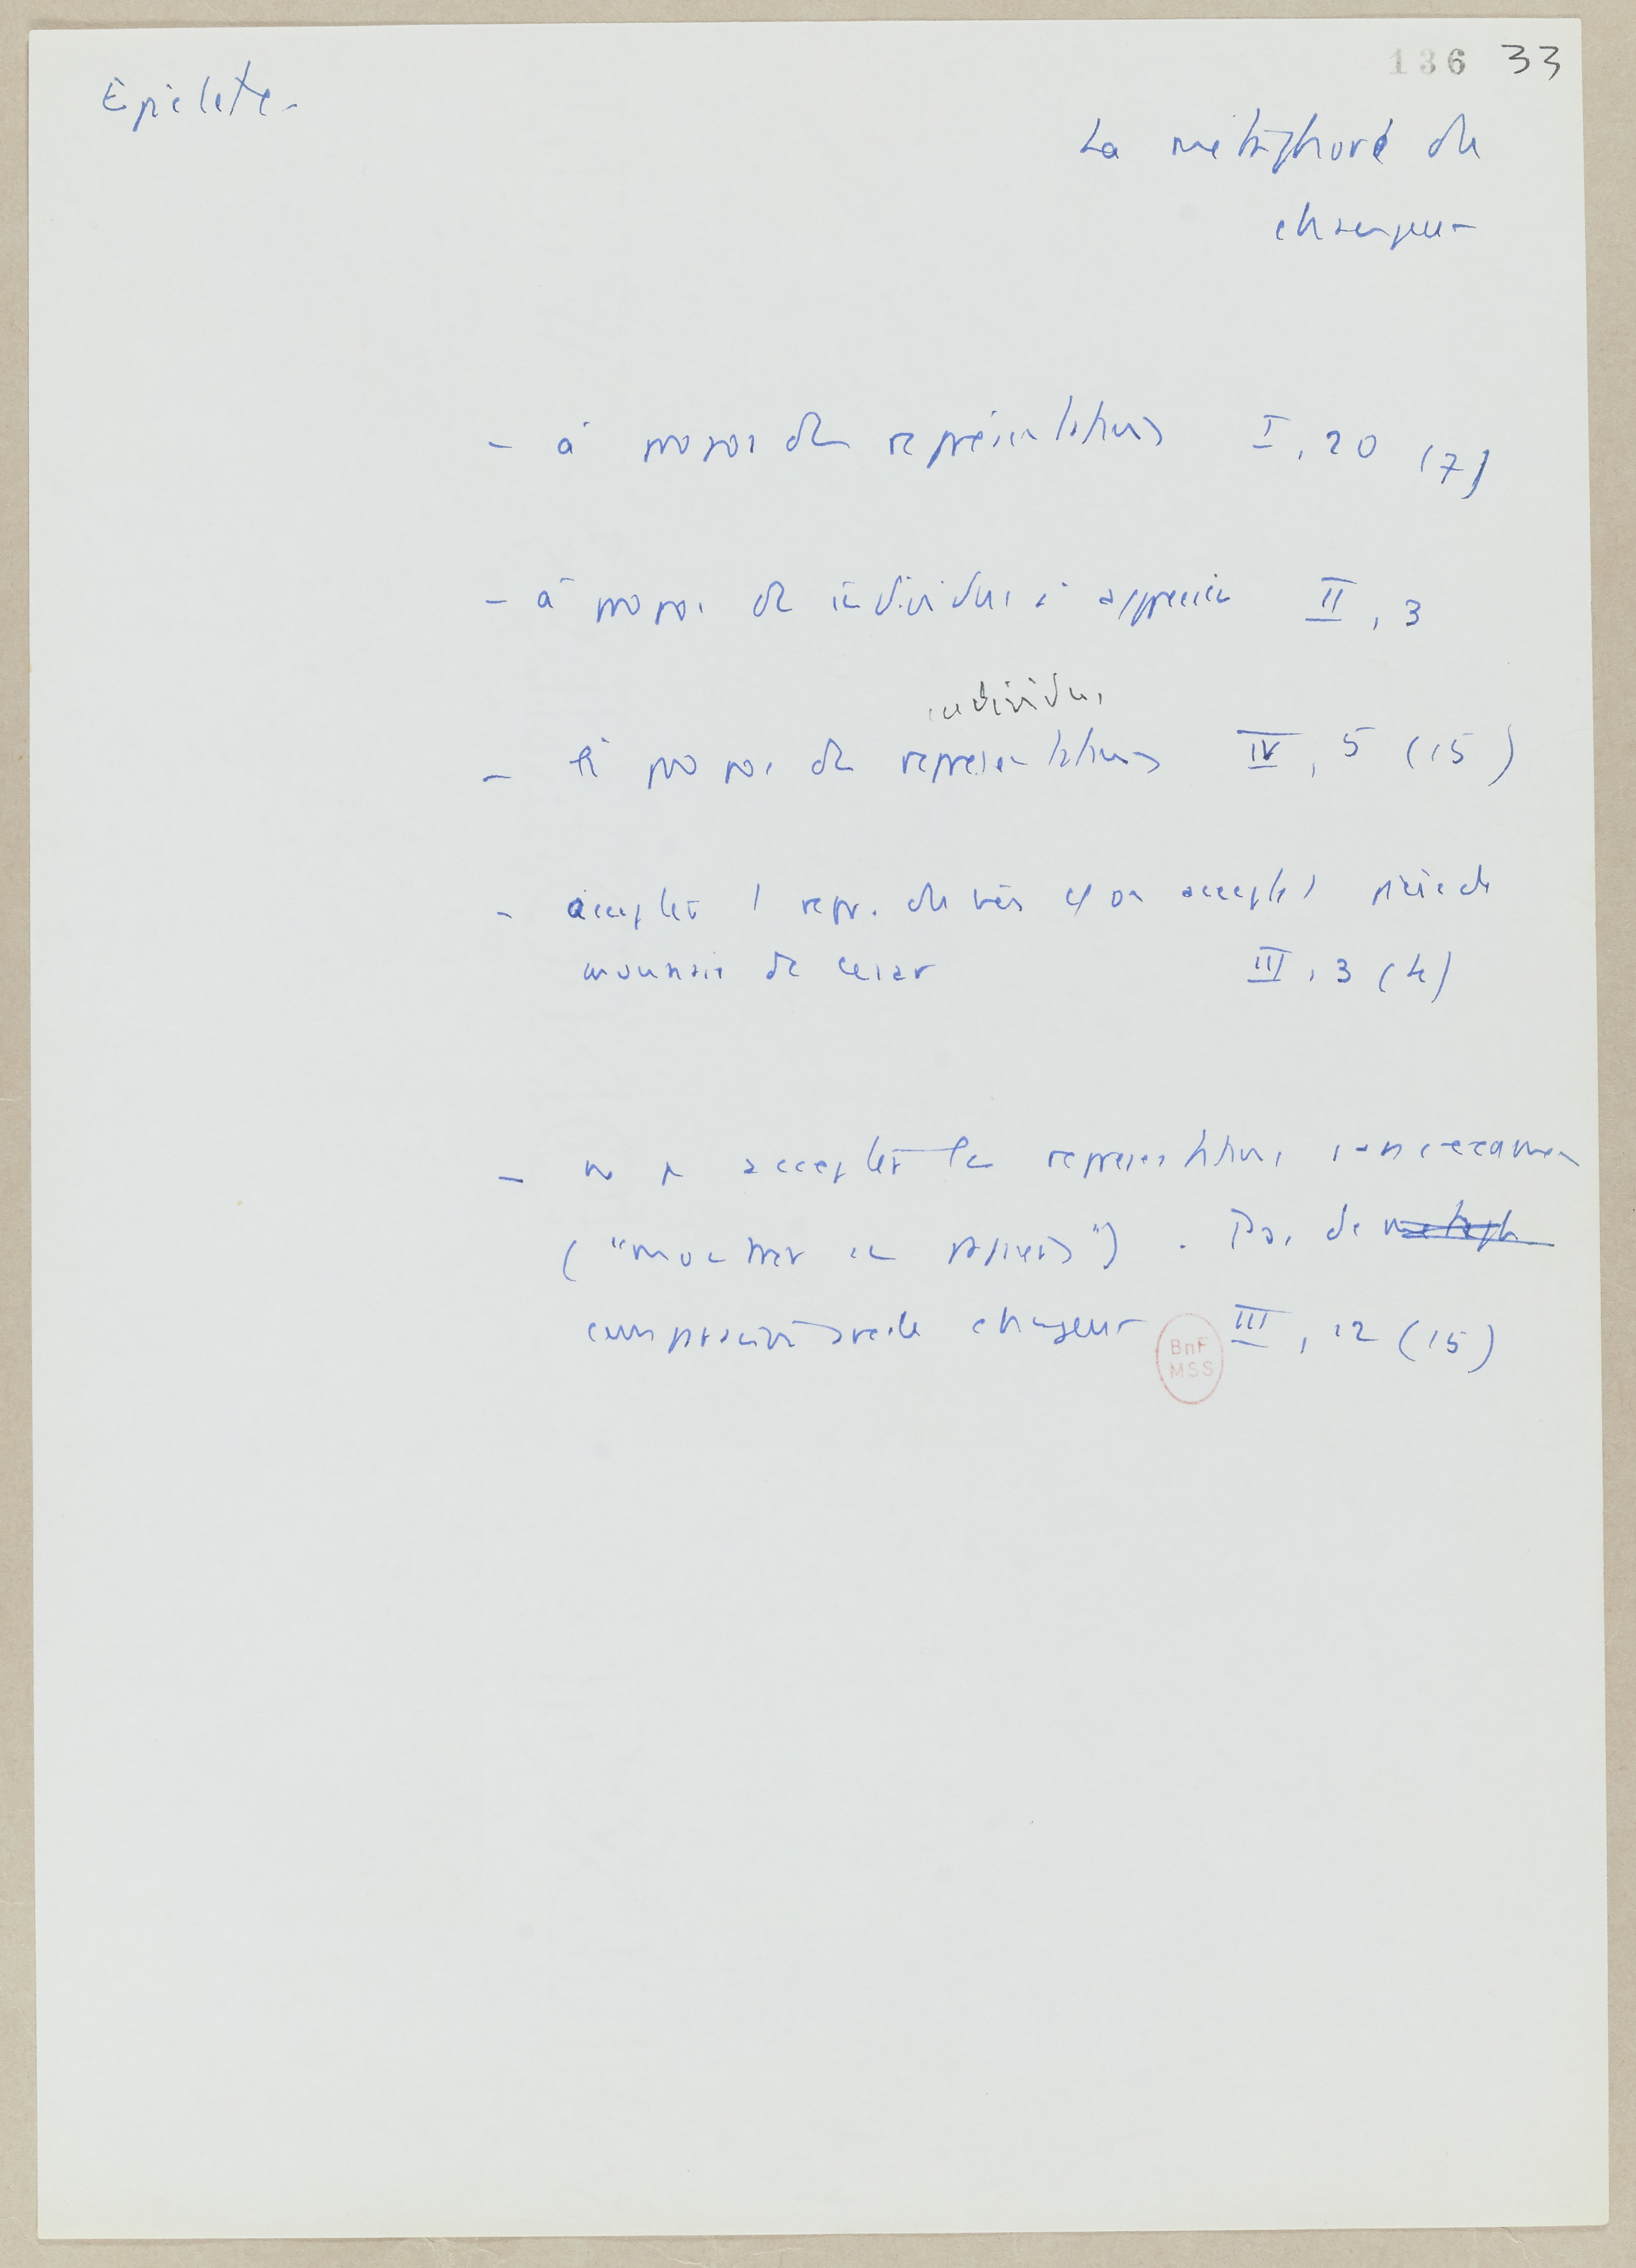 136 33
Épictète.
La métaphore du
changeur
- à propos des représentations I, 20 (7)
- à propos des individus à apprécier II, 3
individus
- à propos des représentations IV, 5 (15)
- accepter 1 repr. du bien cf on accepte 1 pièce de
monnaie de César III, 3 (4)
- ne pas accepter les représentations sans examen
("montrer les papiers"). Pas de métaph
comparaison avec le changeur III, 12 (15)
BnF
MSS